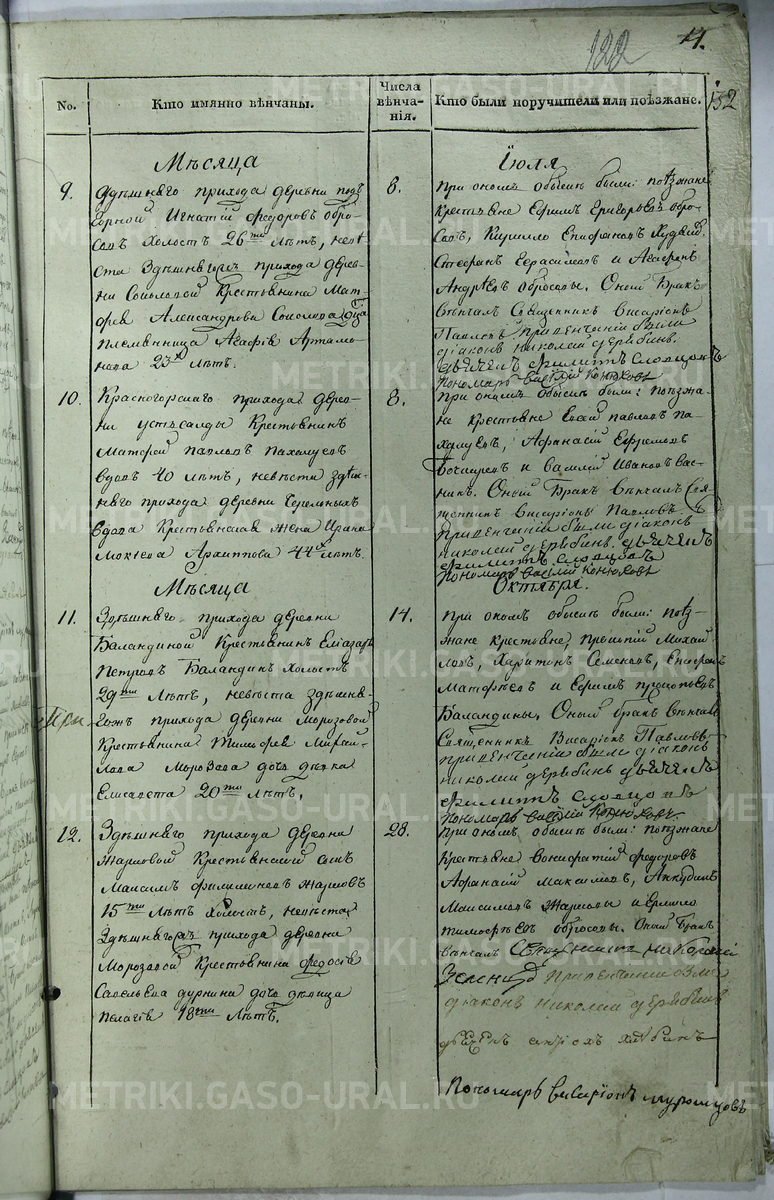 122
11.
132
No.
Кто имянно вѣнчаны.
Числа вѣнча-
нія.
Кто были поручители или поѣзжане.
Мѣсяца
Іюля
9.
Здѣшняго прихода деревни подъ
горной Игнатій Федоровъ обро-
совъ холостъ 26ти лѣтъ, невѣ
ста Здѣшнягожъ прихода дерев-
ни Соколовой Крестьянина Мат-
фея Александрова Соколова
племянница Агафія Артамо-
нова 23х лѣтъ.
8.
При ономъ обыскѣ были: поѣзжане
крестьяне Ефимъ Григорьевъ обро-
совъ, Кирилло Епифановъ
Стефанъ Герасимовъ и Агафонъ
Андрѣевъ обросовы. Оной Бракъ
вѣнчалъ Священникъ Висаріонъ
Павловъ при венчаніи были
діаконъ николай дерябинъ.
дьячекъ филипъ Словцовъ
пономарь василій Конюховъ
10.
Красногорскаго прихода дерев-
ни устьсалды Крестьянинъ
Матфей павловъ пахалуевъ
вдовъ 40 лѣтъ, невѣста здѣш-
няго прихода деревни Черемныхъ
вдова Крестьянская жена Ирина
Мокіева Архиппова 44х лѣтъ.
8.
При ономъ обыскѣ были: поѣзжа-
не крестьяне Евсей павловъ па-
халуевъ, Афанасій Ефремовъ
и василій Ивановъ Вас-
никъ. Оной Бракъ вѣнчалъ Свя-
щенникъ Висаріонъ Павловъ.
при венчаніи были діаконъ
николай дерябинъ. дьячекъ
филипъ словцовъ
пономарь василій Конюховъ
Мѣсяца
Октября.
11.
Здѣшняго прихода деревни
Баландиной Крестьянинъ Еліазаръ
Петровъ Баландинъ холостъ
29ти лѣтъ, невѣста здѣшня-
гожъ прихода деревни Морозовой
Крестьянина Тимофея Михай-
лова Морозова дочь дѣвка
Елисавета 20ти лѣтъ.
14.
При ономъ обыскѣ были: поѣз-
жане крестьяне, Михай
ловъ, Харитонъ Семеновъ, Епифанъ
Матфѣевъ и Ефимъ прокопьевъ
Баландины. Оной бракъ вѣнчалъ
Священникъ Висаріонъ Павловъ
при венчаніи были діаконъ
николай дерябинъ дьячекъ
филипъ словцовъ
пономарь василій Конюховъ.
12.
Здѣшняго прихода деревни
Жарковой Крестьянскій сынъ
Максимъ филимоновъ Жарковъ
15ти лѣтъ холостъ, невѣста
Здѣшнягожъ прихода деревни
Морозовой Крестьянина Федосія
Савельева дурнина дочь дѣвица
Пелагія 18ти лѣтъ.
28.
При ономъ обыскѣ были: поѣзжане
Крестьяне Вонифатій федоровъ
Афанасій Максимовъ, Анкудинъ
Максимовъ Жарковы и Ермило
тимофѣевъ обросовы. Оной Бракъ
вѣнчалъ Священникъ Николай
Зеленцо при венчаніи были
діаконъ николай дерябинъ
дьячекъ
пономарь висаріонъ муромцовъ
METRIKI.GASO-URAL.RU